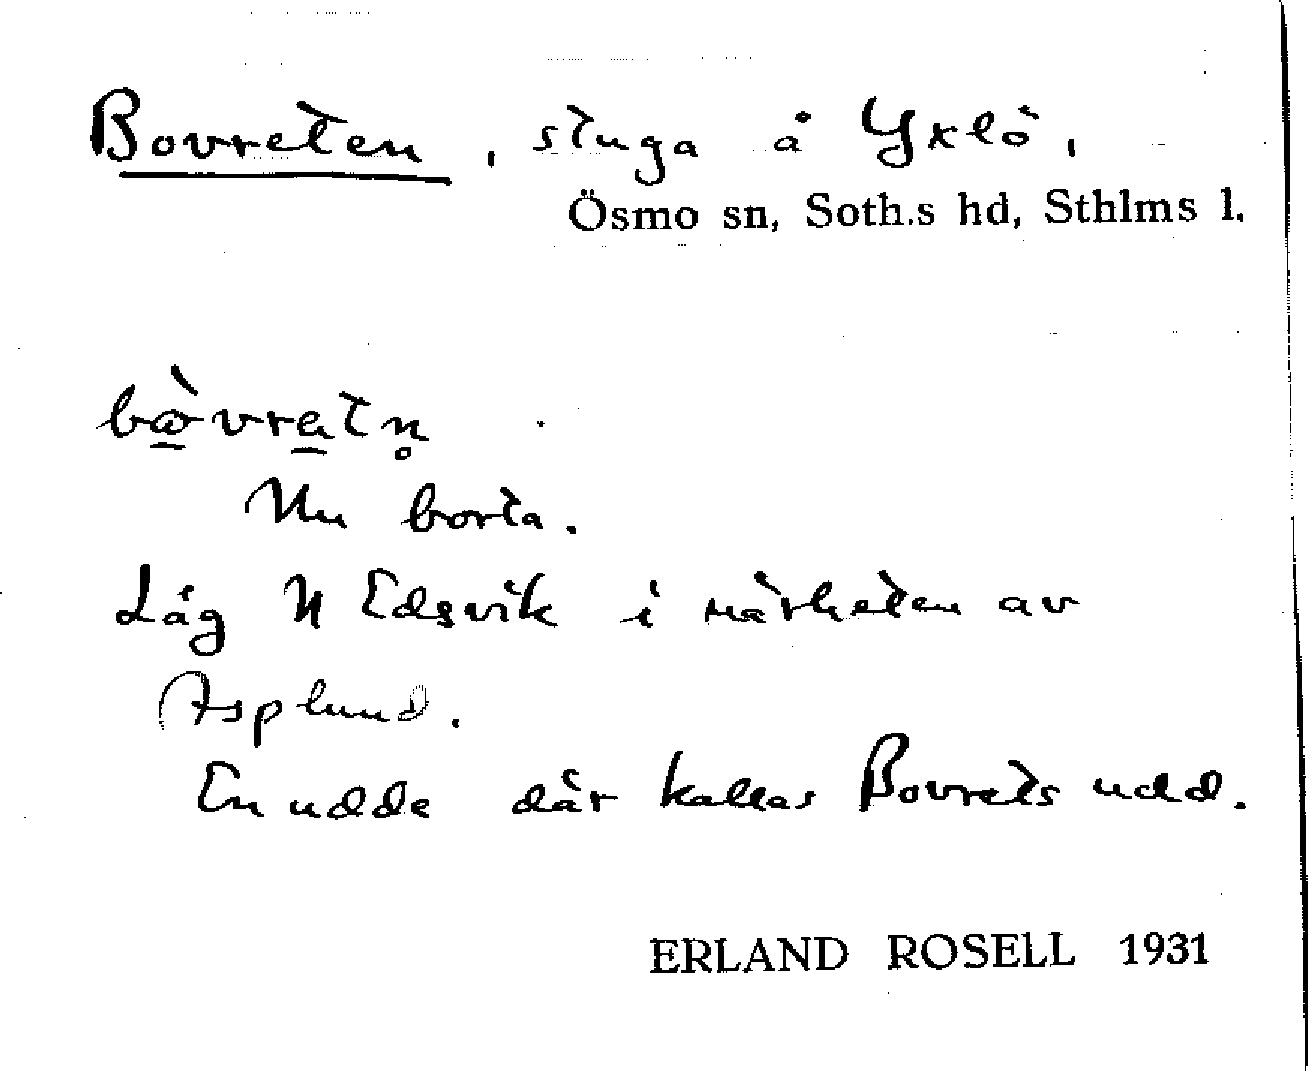 Bovreten, stuga å Yxlö,
Ösmo sn, Soth.s hd, Sthlms l.
bɷ̠̀vra̠tn̥
Nu borta.
Låg N Edsvik i närheten av
Asplund.
En udde där kallas Bovrets udd.
ERLAND ROSELL 1931